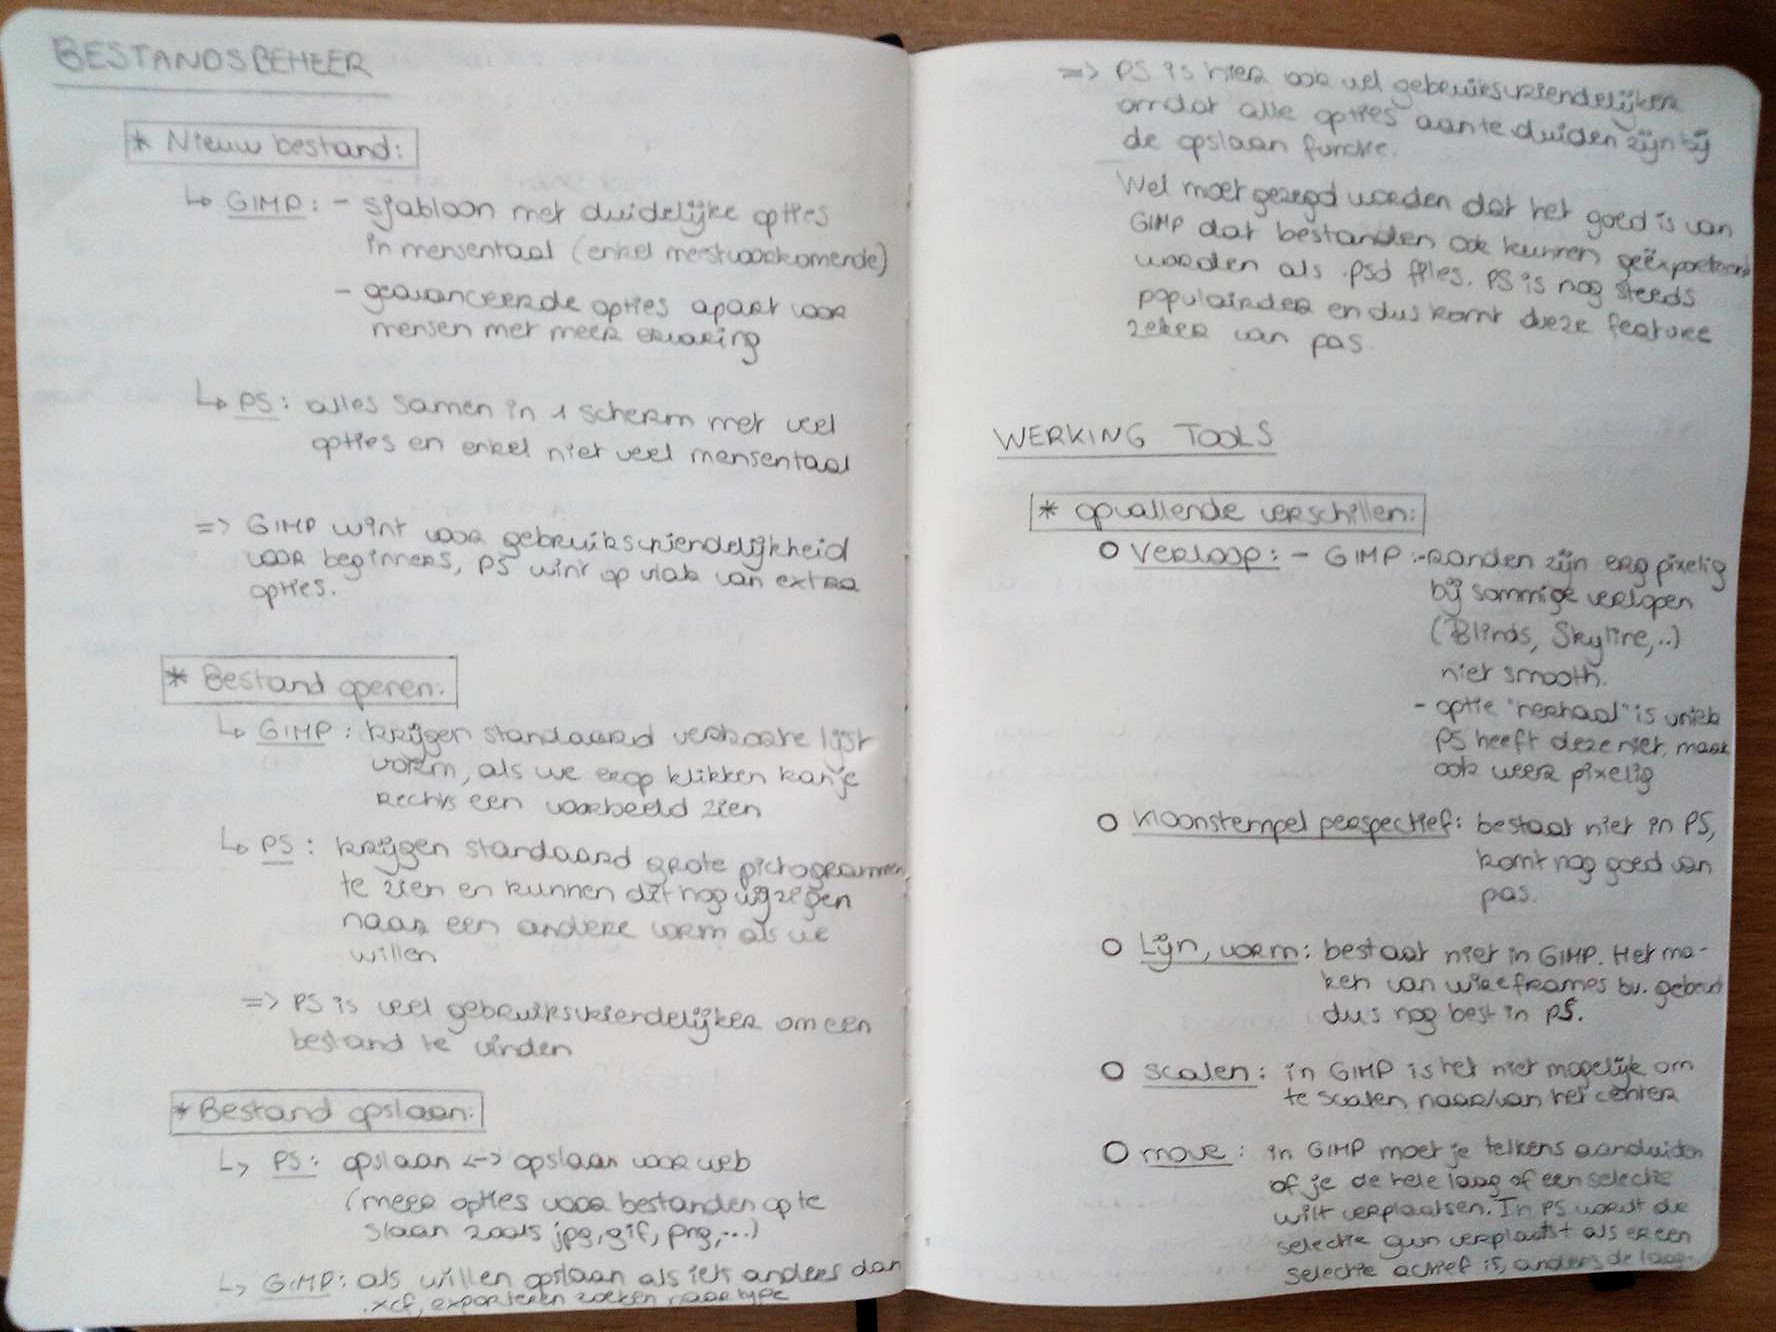 BESTANDSBEHEER
* Nieuw bestand:
↳ GIMP: - sjabloon met duidelijke opties
in mensentaal (enkel meestvoorkomende)
- geavanceerde opties apart voor
mensen met meer ervaring
↳ PS: alles samen in 1 scherm met veel
opties en enkel niet veel mensentaal
=> GIMP wint voor gebruiksvriendelijkheid
voor beginners, PS wint op vlak van extra
opties.
* Bestand openen:
↳ GIMP: krijgen standaard verkorte lijst
vorm, als we erop klikken kan je
rechts een voorbeeld zien
↳ PS: krijgen standaard grote pictogrammen
te zien en kunnen dit nog wijzigen
naar een andere vorm als we
willen
=> PS is veel gebruiksvriendelijker om een
bestand te vinden
* Bestand opslaan:
↳ PS: opslaan <-> opslaan voor web
(meer opties voor bestanden op te
slaan zoals jpg, gif, png,...)
↳ GIMP: als willen opslaan als iets anders dan
.xcf, exporteren zoeken naar type
=> PS is hier ook wel gebruiksvriendelijker
omdat alle opties aan te duiden zijn bij
de opslaan functie.
Wel moet gezegd worden dat het goed is van
GIMP dat bestanden ook kunnen geëxporteerd
worden als .psd files. PS is nog steeds
populairder en dus komt deze feature
zeker van pas
WERKING TOOLS
* opvallende verschillen:
O Verloop: - GIMP: - randen zijn erg pixelig
bij sommige verlopen
(Blinds, Skyline,..)
niet smooth.
- optie "herhaal" is uniek
PS heeft deze niet, maar
ook weer pixelig
O Kloonstempel perspectief: bestaat niet in PS,
komt nog goed van
pas.
O Lijn, vorm: bestaat niet in GIMP. Het ma-
ken van wireframes bv. gebeurt
dus nog best in PS.
O scalen: in GIMP is het niet mogelijk om
te scalen naar/van het center
O move: in GIMP moet je telkens aanduiden
of je de hele laag of een selectie
wilt verplaatsen. In PS wordt de
selectie gwn verplaatst als er een
selectie actief is, anders de laag.